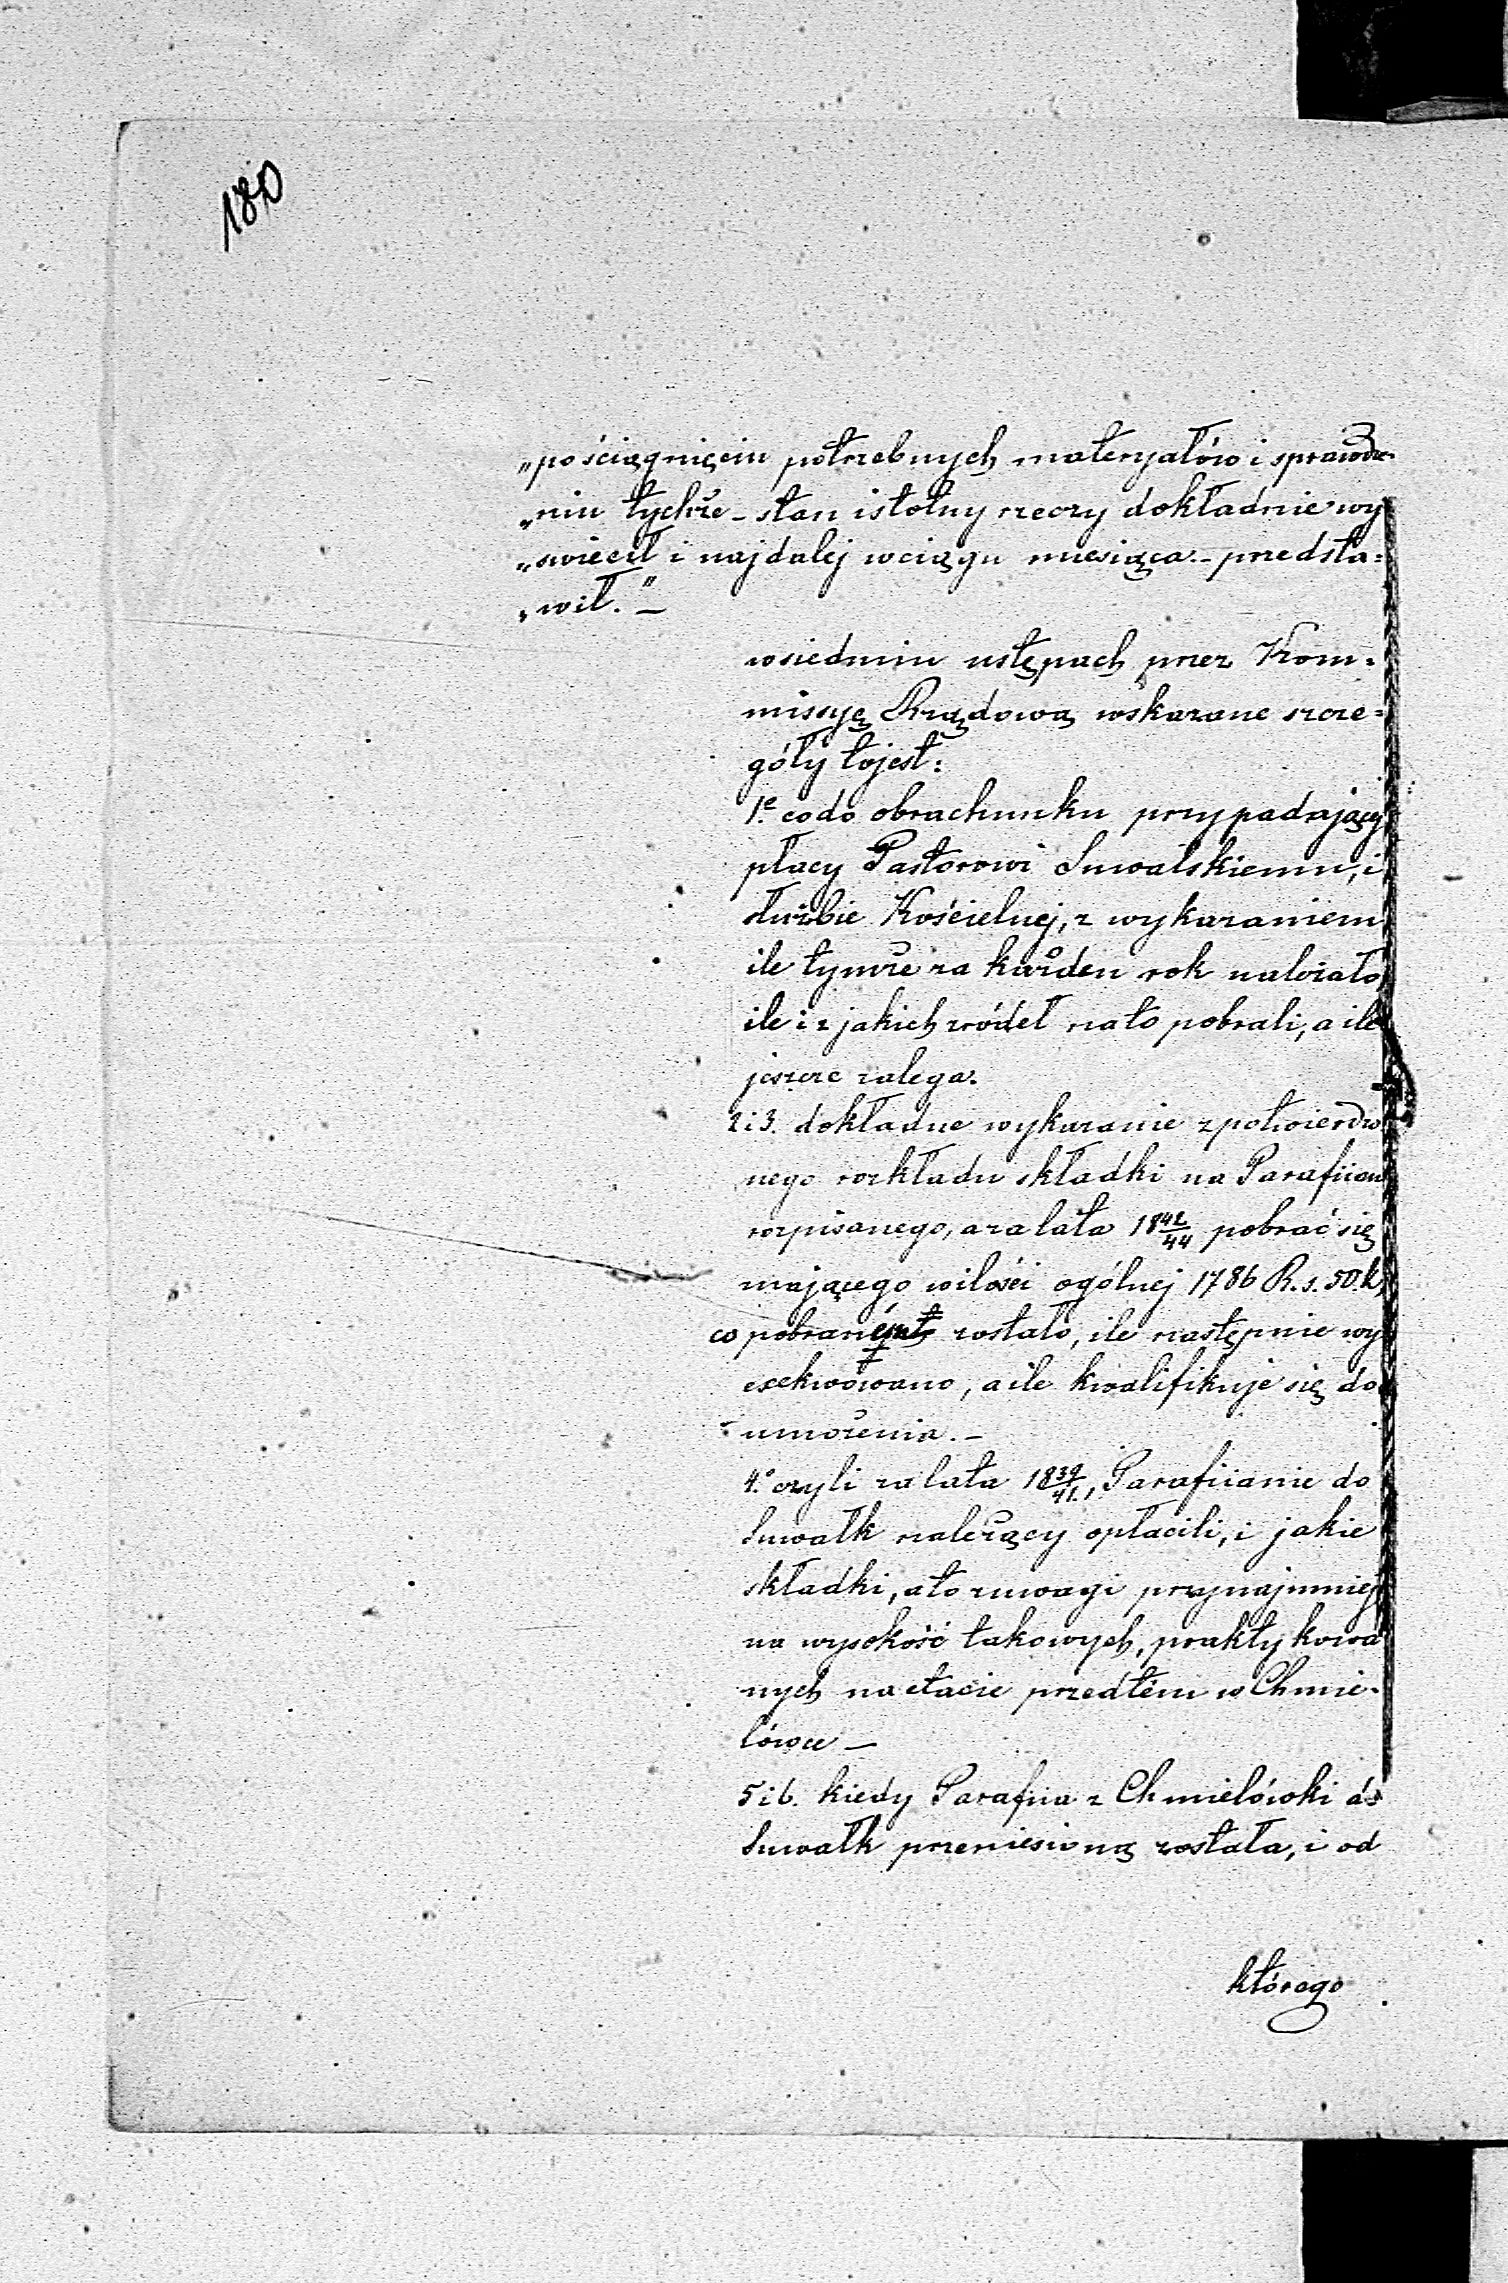 180
„pościągnięciu potrzebnych materyałów i sprawdze-
„niu tychże - stan istotny rzeczy dokładnie wy
„swiecił i najdalej wciągu miesiąca. - przedsta=
„wił." -
wsiedmiu ustępach przez Kom=
missyę Rządową wskazane szcze=
góły tojest:
1.e codo obrachunku przypadający
płacy Pastorowi Suwalskiemu, i
służbie Kościelnej, z wykazaniem
ile tymże za każden rok należało,
ile i z jakich źródeł nato pobrali, a ile
jeszcze zalega.
2 i 3. dokładne wykazanie z potwierdzo
nego rozkładu składki na Parafiian
rozpisanego, a za lata 1842/44 pobrać się
mającego wilości ogólnej 1786 R.s. 50.k,
co pobraném zostało, ile następnie wy
exekwowano, a ile kwalifikuje się do
umorzenia. -
4.o czyli za lata 1839/41., Parafiianie do
Suwałk należący opłacili, i jakie
składki, a to zuwagi przynajmniej
na wysokość takowych, praktykowa
nych na etacie przedtém w Chmie-
lówce -
5 i 6. kiedy Parafiia z Chmielówki do
Suwałk przeniesioną została, i od
którego